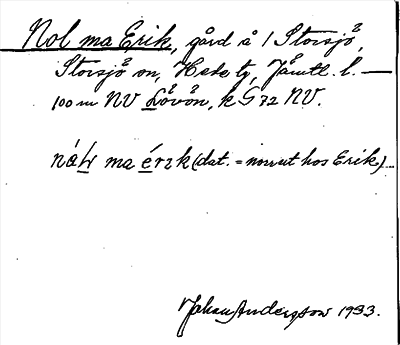 Nol ma Erik, gård å 1 Storsjö,
Storsjö sn, Hede tg, Jämtl. l. —
100 m NV Lövön, k G 72 NV.
ma érɩk (dat. = norrut hos Erik)
Johan Anderson 1933.